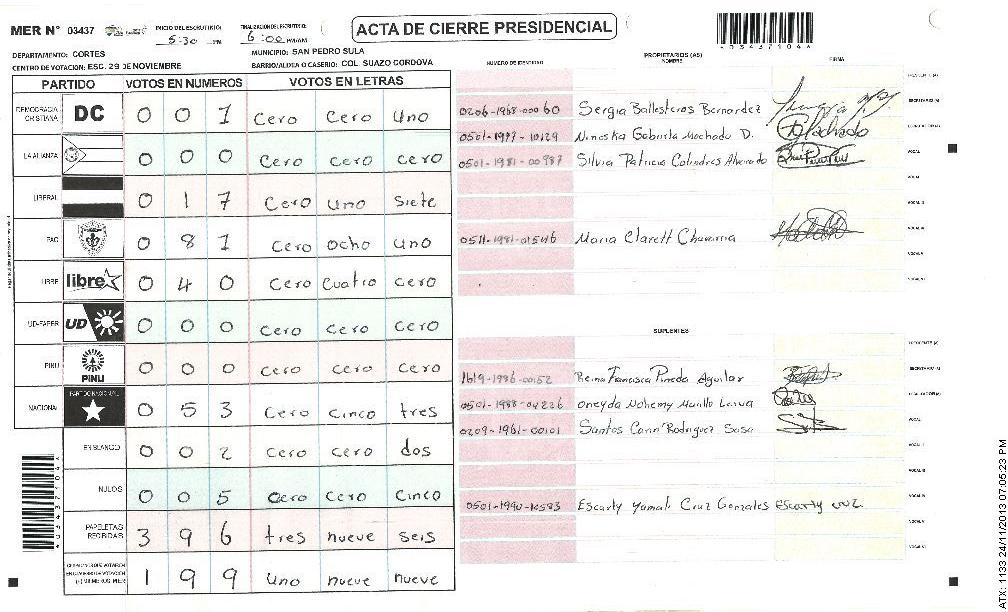 MER Nº 03437
INICIO DEL ESCRUTINIO:
5:30 PM
FINALIZACION DEL ESCRUTINIO:
6:00 PM/AM
ACTA DE CIERRE PRESIDENCIAL
DEPARTAMENTO: CORTES
MUNICIPIO: SAN PEDRO SULA
CENTRO DE VOTACION: ESC. 29 DE NOVIEMBRE
BARRIO/ALDEA O CASERIO: COL. SUAZO CORDOVA
PARTIDO VOTOS EN NUMEROS VOTOS EN LETRAS
DEMOCRACIA CRISTIANA DC 0 0 1 Cero Cero Uno
LA ALIANZA 0 0 0 Cero Cero Cero
LIBERAL 0 1 7 Cero Uno Siete
PAC 0 8 1 Cero Ocho Uno
LIBRE libre 0 4 0 Cero Cuatro Cero
UD-FAPER UD 0 0 0 Cero Cero Cero
PINU PINU 0 0 0 Cero Cero Cero
NACIONAL PARTIDO NACIONAL 0 5 3 Cero Cinco tres
EN BLANCO 0 0 2 Cero Cero dos
NULOS 0 0 5 Cero Cero Cinco
PAPELETAS RECIBIDAS 3 9 6 tres nueve seis
1 9 9 Uno nueve nueve
NUMERO DE IDENTIDAD
PROPIETARIOS (AS)
NOMBRE
FIRMA
0206-1968-00060 Sergia Ballesteros Bernardez
0501-1997-10129 Ninoska Gabriela Machado D.
0501-1981-00987 Silvia Patricia Colindres Alvarado
0511-1981-01546 Maria Clarett Chavarria
SUPLENTES
1619-1986-00152 Reina Francisca Pineda Aguilar
0501-1988-04226 Oneyda Nohemy Murillo Leiva
0209-1961-00101 Santos Rodriguez Sosa
Escarly Yamali Cruz Gonzales Escarly
ATX: 1133 24/11/2013 07:05:23 PM